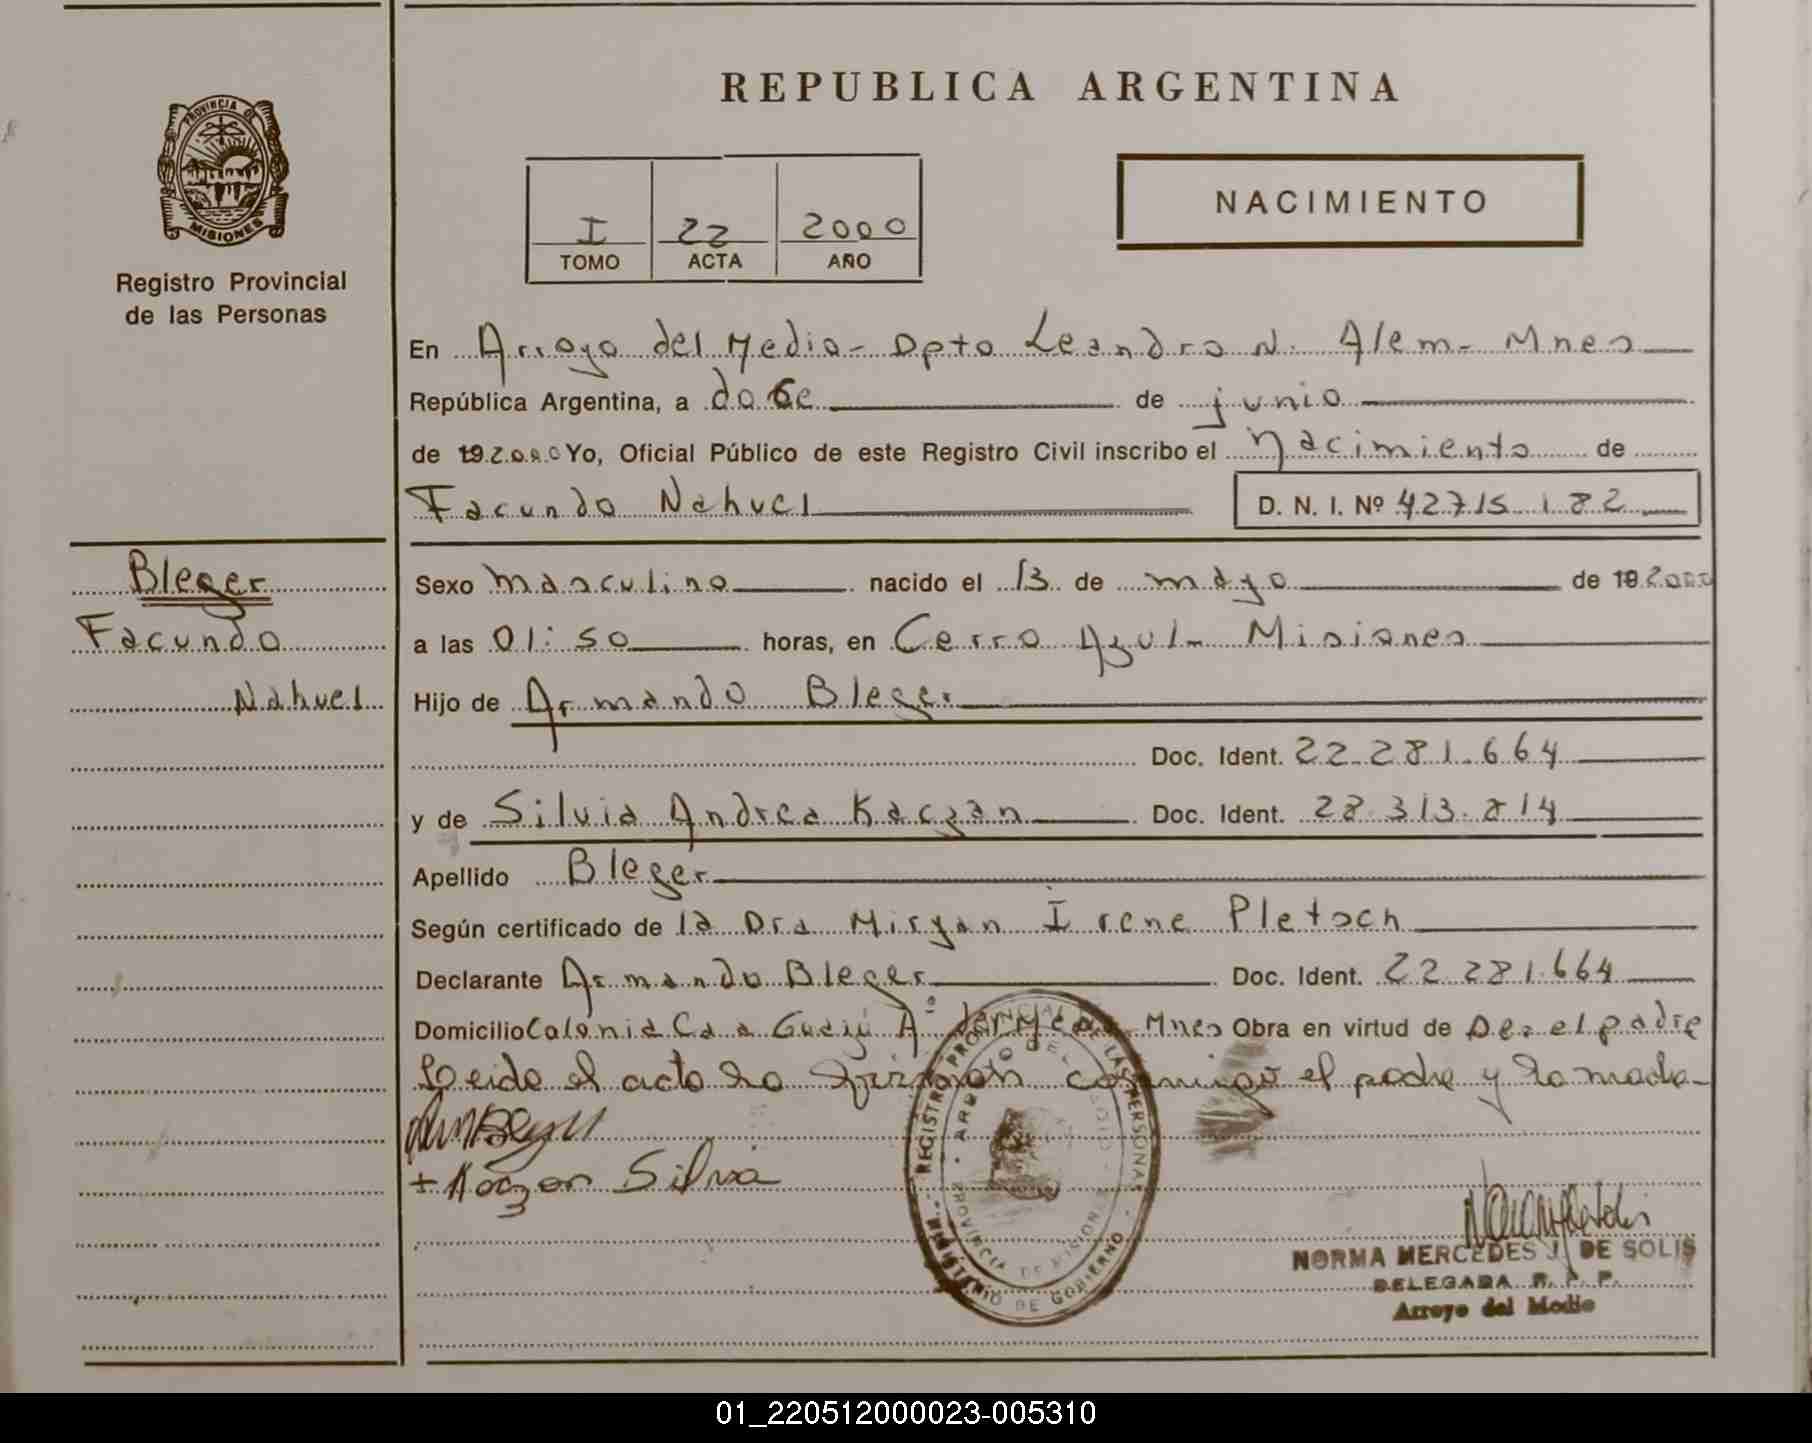 REPUBLICA ARGENTINA
PROVINCIA DE
MISIONES
Registro Provincial
de las Personas
NACIMIENTO
I 22 2000
TOMO ACTA AÑO
En Arroyo del Medio - Dpto Leandro N. Alem - Mnes
República Argentina, a doce de junio
de 19 2.000 Yo, Oficial Público de este Registro Civil inscribo el nacimiento de
Facundo Nahuel D. N. I. Nº 42.715.182
Bleger
Facundo
Nahuel
Sexo masculino nacido el 13 de mayo de 19 2000
a las 01:50 horas, en Cerro Azul - Misiones
Hijo de Armando Bleger
Doc. Ident. 22.281.664
y de Silvia Andrea Kaczan Doc. Ident. 28.313.814
Apellido Bleger
Según certificado de la Dra Miryan Irene Pletsch
Declarante Armando Bleger Doc. Ident. 22.281.664
Domicilio Colonia Caa Mnes Obra en virtud de Ser el padre
Leida el acta la firman conmigo el padre y la madre-
+ Kaczan Silvia
REGISTRO PROVINCIAL DE LAS PERSONAS
ARROYO DEL MEDIO
PROVINCIA DE MISIONES
MINISTERIO DE GOBIERNO
NORMA MERCEDES J. DE SOLIS
DELEGADA R. P. P.
Arroyo del Medio
01_220512000023-005310